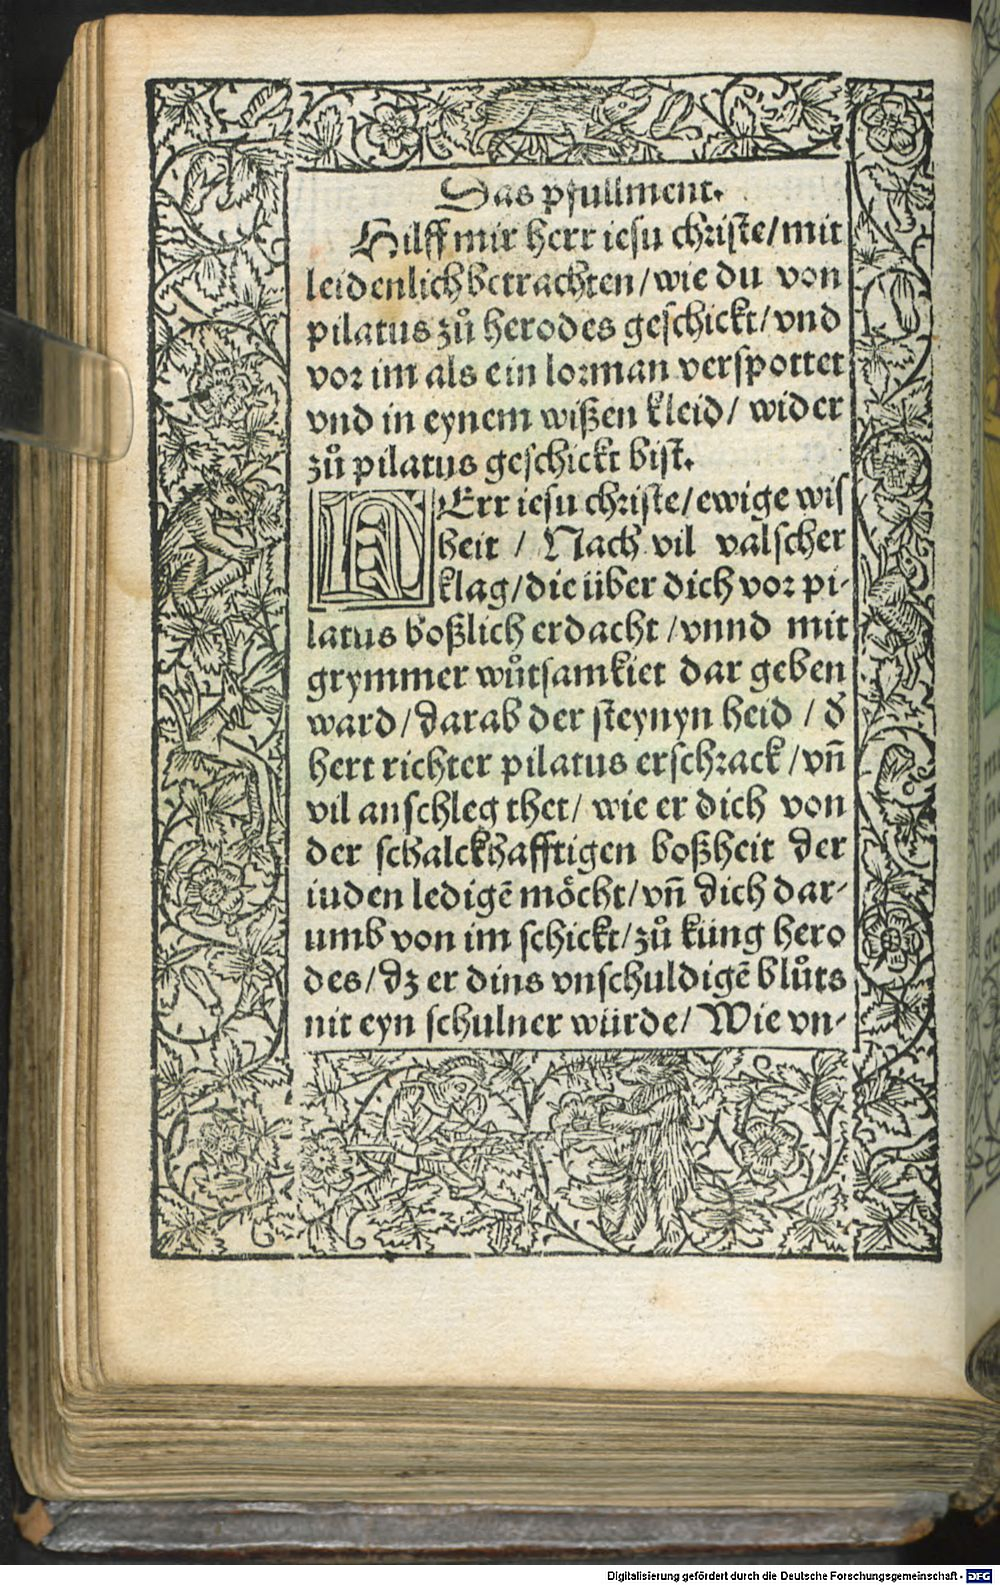 Das pfullment.
Hilff mir herr iesu christe/mit
leidenlich betrachten/wie du von
pilatus zů herodes geschickt/vnd
vor im als ein lorman verspottet
vnd in eynem wißen kleid/ wider
zů pilatus geschickt bist.
HErr iesu christe/ewige wis
heit / Nach vil valscher
klag/die über dich vor pi-
latus boßlich erdacht/vnnd mit
grymmer wůtsamkiet dar geben
ward/darab der steynyn heid / d̕
hert richter pilatus erschrack/vn̄
vil anschleg thet/ wie er dich von
der schalckhafftigen boßheit der
iuden ledigē möcht/vn̄ dich dar-
umb von im schickt/zů küng hero
des/dz er dins vnschuldigē blůts
nit eyn schulner würde/ Wie vn-
Digitalisierung gefördert durch die Deutsche Forschungsgemeinschaft - DFG